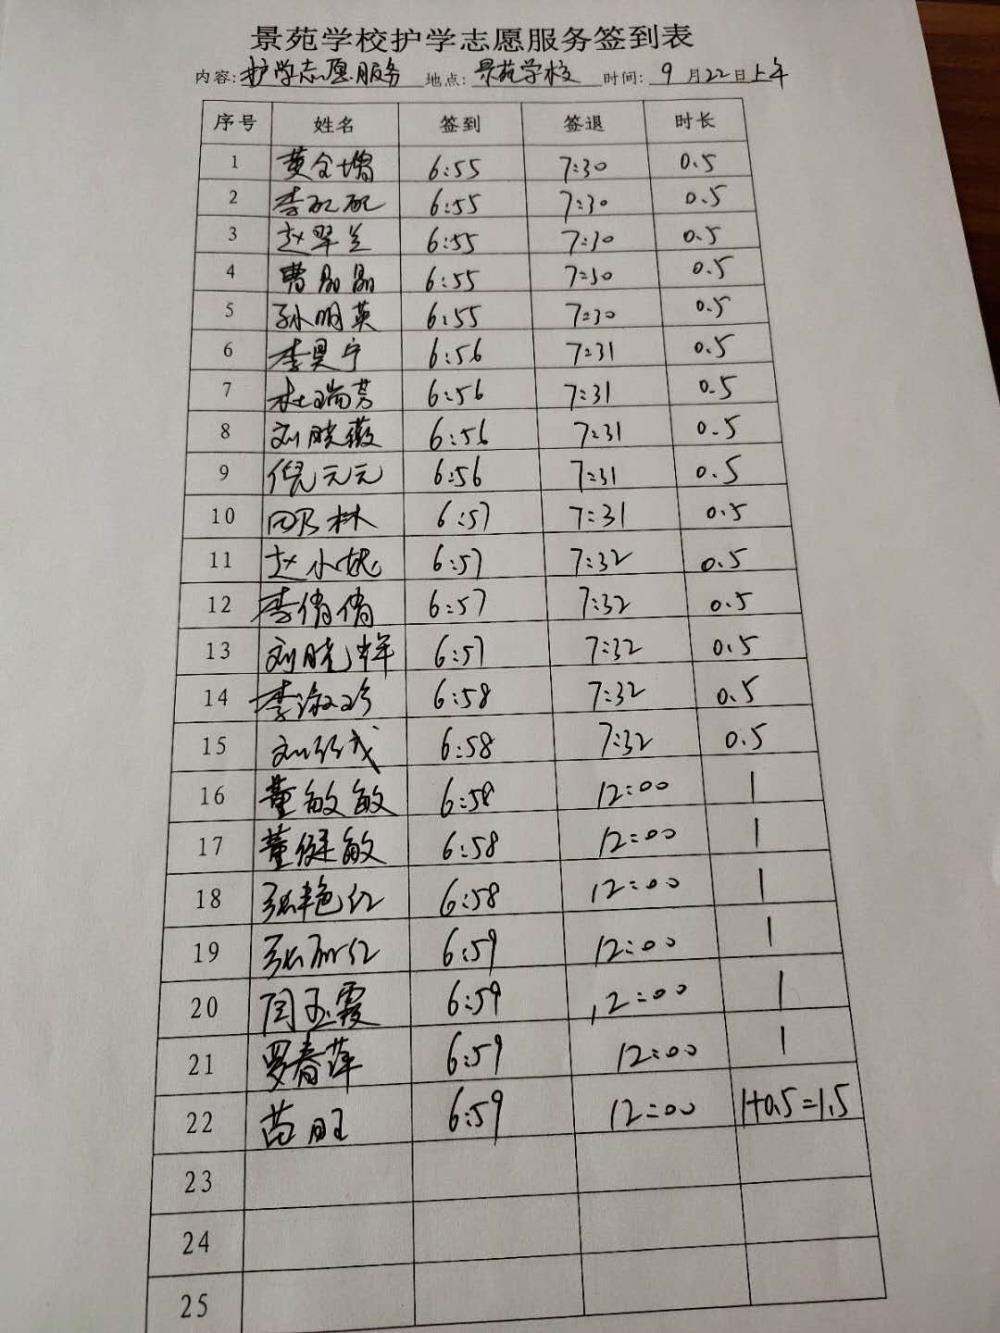 景苑学校护学志愿服务签到表
内容:护学志愿服务 地点:景苑学校 时间:9月22日上午
序号 姓名 签到 签退 时长
1 黄全增 6:55 7:30 0.5
2 李配配 6:55 7:30 0.5
3 赵翠兰 6:55 7:30 0.5
4 曹晶晶 6:55 7:30 0.5
5 孙明英 6:55 7:30 0.5
6 李昊宁 6:56 7:31 0.5
7 杜瑞芳 6:56 7:31 0.5
8 刘晓薇 6:56 7:31 0.5
9 倪元元 6:56 7:31 0.5
10 林 6:57 7:31 0.5
11 赵小妮 6:57 7:32 0.5
12 李倩倩 6:57 7:32 0.5
13 刘晓 6:57 7:32 0.5
14 李淑珍 6:58 7:32 0.5
15 刘 6:58 7:32 0.5
16 董敏敏 6:58 12:00 1
17 董健敏 6:58 12:00 1
18 张艳红 6:58 12:00 1
19 张丽红 6:59 12:00 1
20 闫玉霞 6:59 12:00 1
21 罗春萍 6:59 12:00 1
22 苗旺 6:59 12:00 1+0.5=1.5
23
24
25